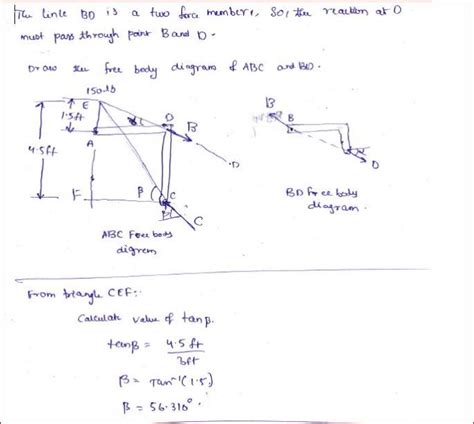 The link BD is a two force members, So, the reaction at D
must pass through point B and D.
Draw the free body diagram of ABC and BD.
150-lb
E
1.5ft
D
B
B
B
4.5ft
A
D
D
F
β
C
C
BD Free body
diagram.
ABC Free body
digrem
From triangle CEF:-
Calculate value of tanβ.
tanβ = 4.5 ft
3ft
β = Tan⁻¹(1.5)
β = 56.310°.